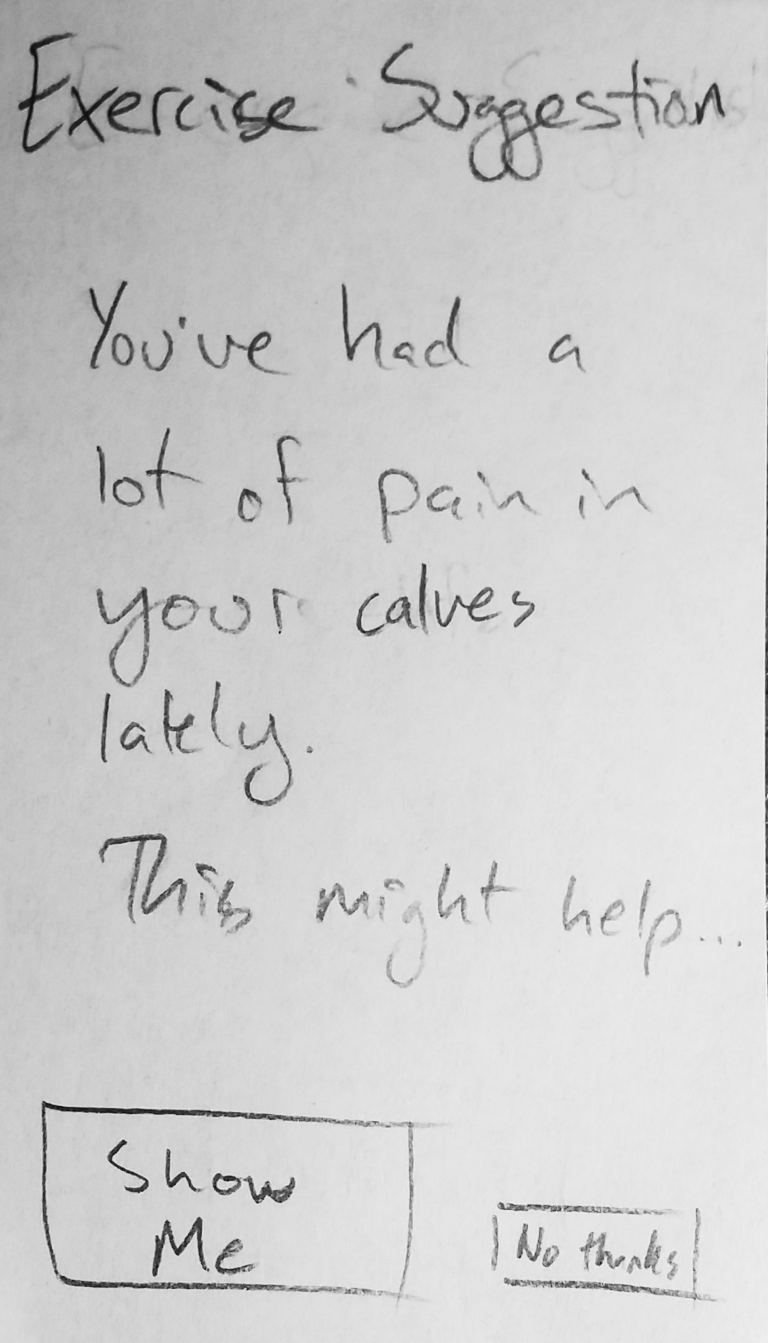 Exercise Suggestion
You've had a
lot of pain in
your calves
lately.
This might help...
Show
Me
No thanks